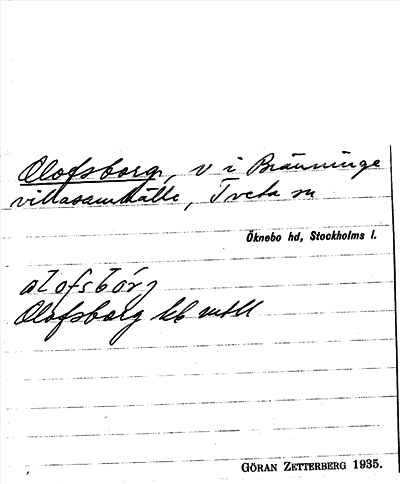 Olofsborg, v i Bränninge
villasamhälle, Tveta sn
Öknebo hd, Stockholms l.
Olofsborg
GÖRAN ZETTERBERG 1935.